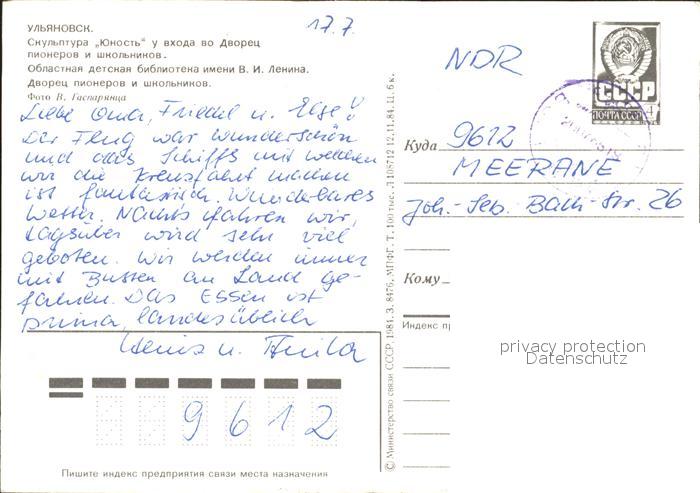 УЛЬЯНОВСК.
Скульптура „Юность" у входа во Дворец
пионеров и школьников.
Областная детская библиотека имени В. И. Ленина.
Дворец пионеров и школьников.
Фото В. Гаспарянца
17.7.
Liebe Oma, Friedel u. Else!
Der Flug war wunderschön
und das Schiff mit welchem
wir die Kreuzfahrt machen
ist fantastisch. Wunderbares
Wetter. Nachts fahren wir,
tagsüber wird sehr viel
geboten. Wir werden immer
mit Bussen an Land ge-
fahren. Das Essen ist
prima, landesüblich
u.
9 6 1 2
Пишите индекс предприятия связи места назначения
© Министерство связи СССР, 1981. З. 8476. МПФГ. Т. 100 тыс.
12.11.84. Ц. 6 к.
NDR
СССР
ПОЧТА СССР
Куда 9612
MEERANE
Joh.-Seb. Bach-Str. 26
Кому
Индекс пр
privacy protection
Datenschutz